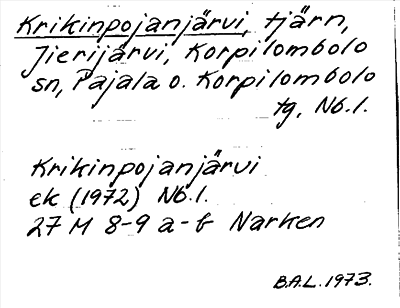 Krikinpojanjärvi, tjärn,
Jierijärvi, Korpilombolo
sn, Pajala o. Korpilombolo
tg, Nb.l.
Krikinpojanjärvi
ek (1972) Nb.l.
27 M 8-9 a-b Narken
B.A.L. 1973.